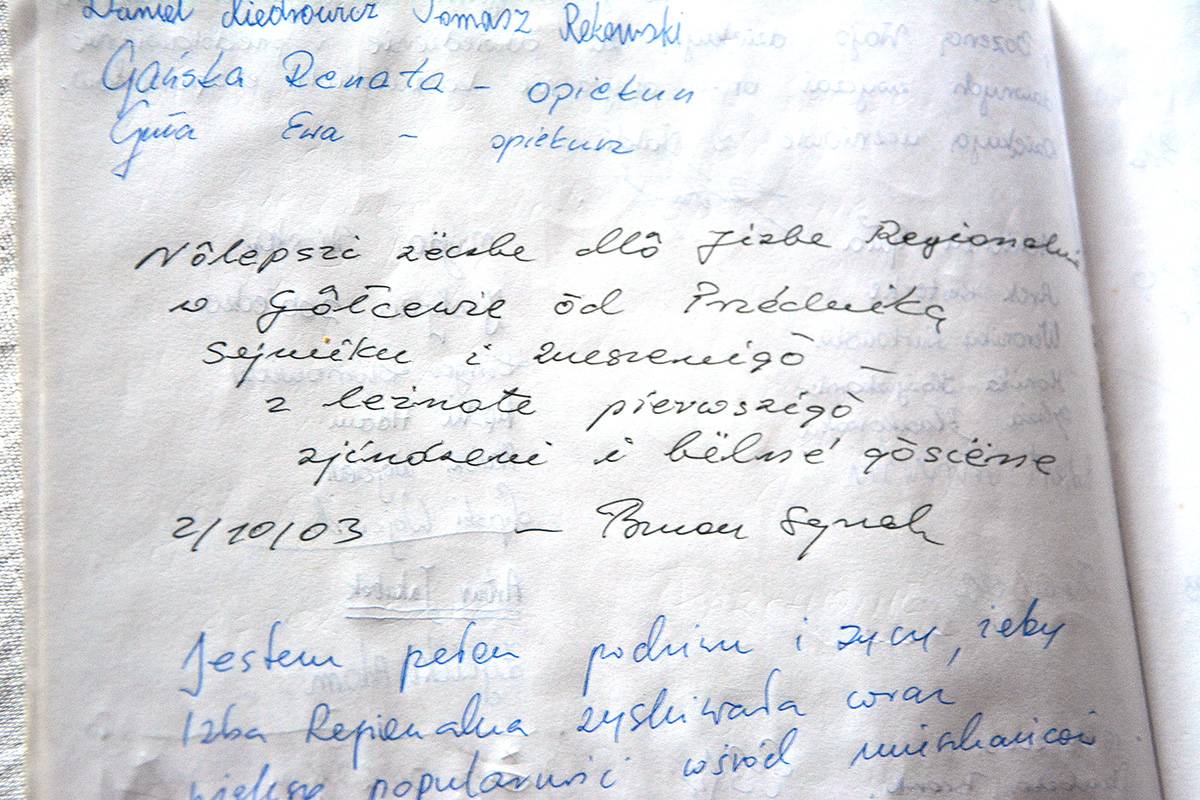 Daniel Kiedrowicz Tomasz Rekowski
Gańska Renata – opiekun
Ewa – opiekun
Nôlepszi żëczbe dlô Jizbe Regionalni
w Gôłczewie òd Przédnika
Sejmiku i
z leżnote pierwszigò
i bëlné gòscënë
2/10/03 – Brunon Synak
Jestem pełen podziwu i życzę, żeby
Izba Regionalna zyskiwała coraz
większą popularność wśród mieszkańców